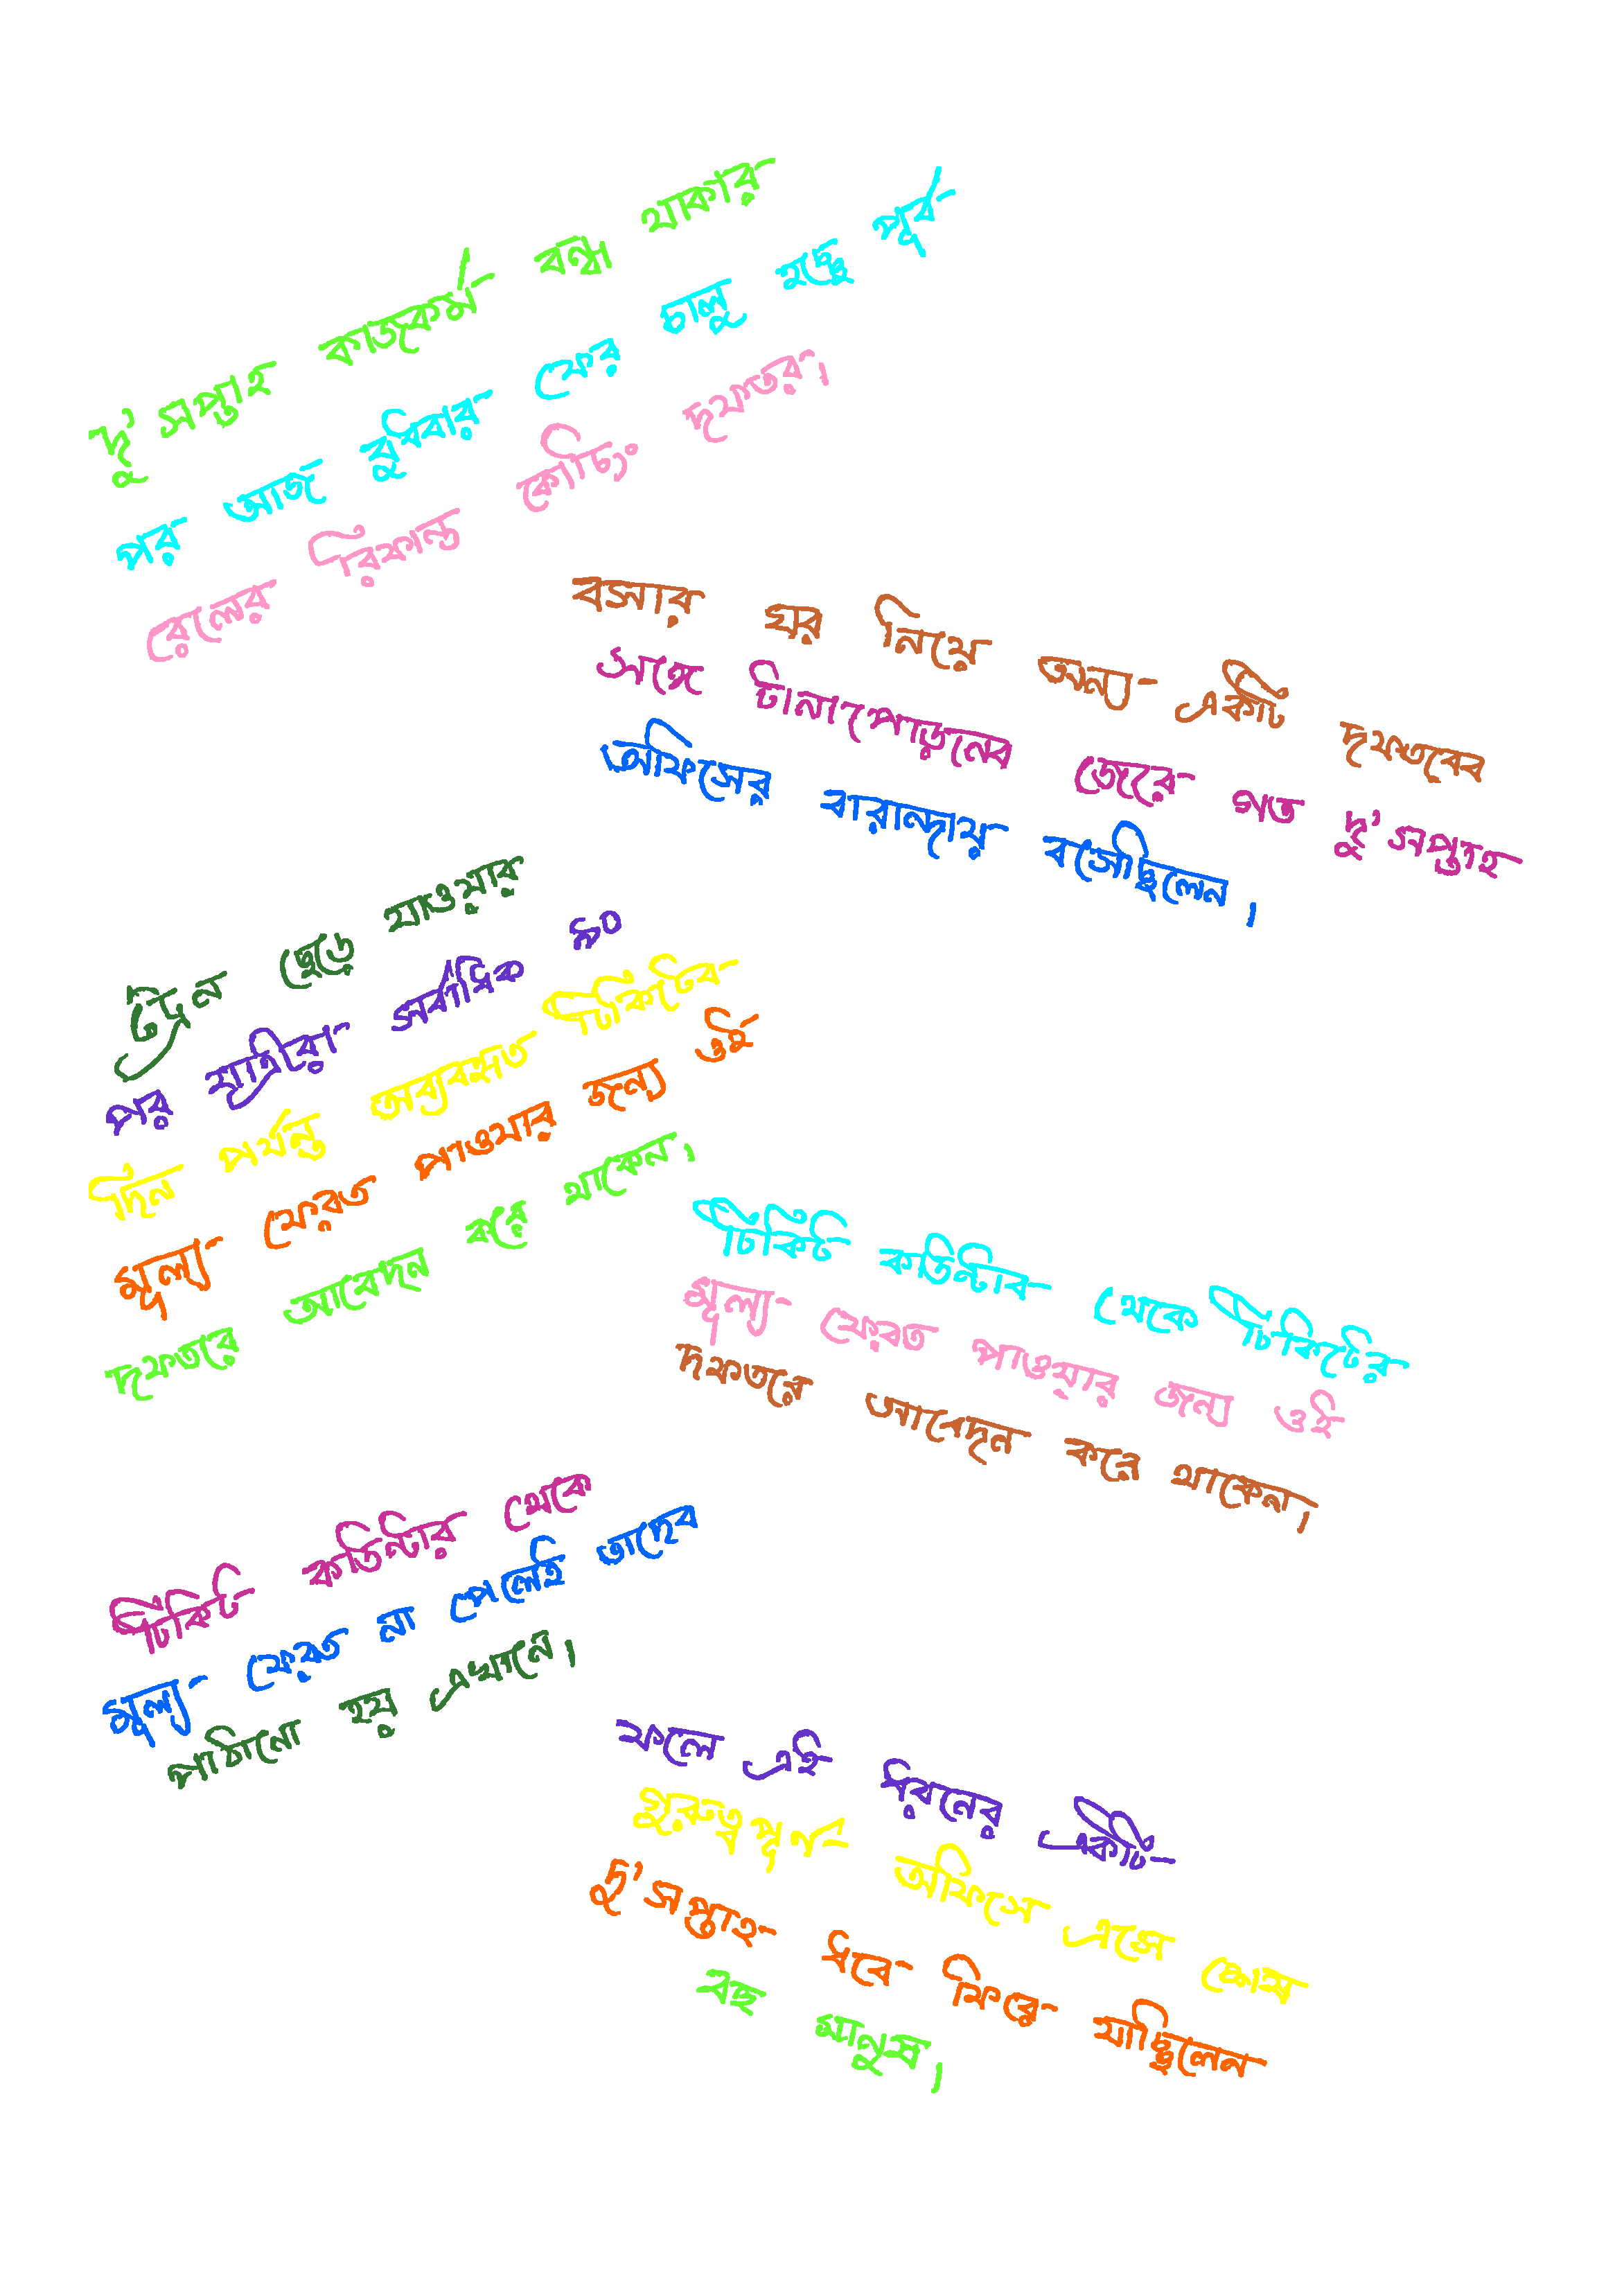 দু'সপ্তাহ কাজকর্ম বন্ধ থাকার
পর আজ বুধবার ফের চালু হচ্ছে পূর্ব
রেলের রিফান্ড কোচিং দফতর।
বসার ঘর নিয়ে অন্য একটি দফতরের
সঙ্গে টানাপোড়নের জেরে গত দু'সপ্তাহ
অফিসের বারান্দায় বসেছিলেন।
ট্রেন ছেড়ে যাওয়ার
পর যাত্রীরা সর্বাধিক ৯০
দিন পর্যন্ত অব্যবহৃত টিকিটের
মূল্য ফেরত পাওয়ার জন্য ওই
দফতরে আবেদন করে থাকেন।
টিকিট কাউন্টার থেকে টিকিটের
মূল্য ফেরত পাওয়ার জন্য ওই
দফতরে আবেদন করে থাকেন।
টিকিট কাউন্টার থেকে
মূল্য ফেরত না পেলেই তাদের
পাঠানো হয় এখানে।
ফলে এই ধরনের একটি
গুরুত্বপূর্ণ অফিসে এসে শেষ
দু'সপ্তাহ ধরে ফিরে যাচ্ছিলেন
বহু মানুষ।